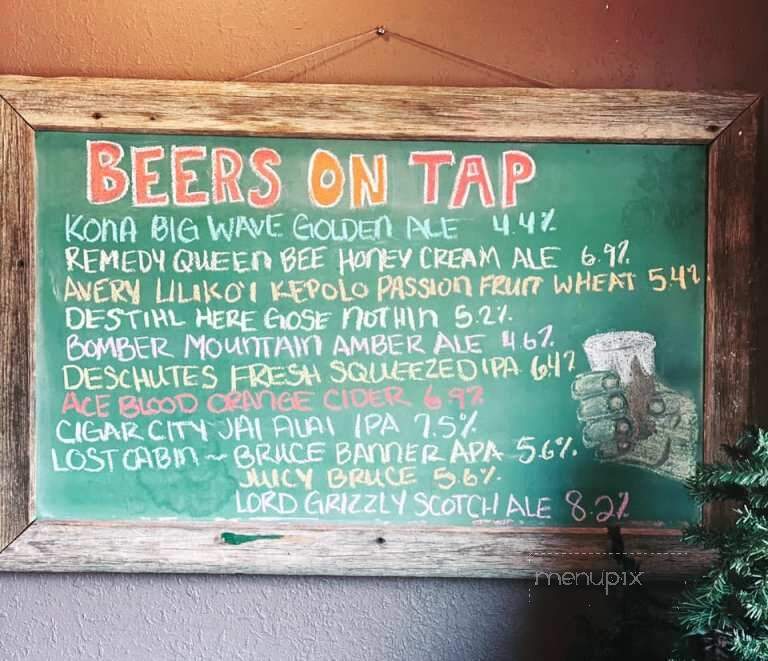 BEERS ON TAP
KONA BIG WAVE GOLDEN ALE 4.4%
REMEDY QUEEN BEE HONEY CREAM ALE 6.9%
AVERY LILIKO'I KEPOLO PASSION FRUIT WHEAT 5.4%
DESTIHL HERE GOSE NOTHIN 5.2%
BOMBER MOUNTAIN AMBER ALE 4.6%
DESCHUTES FRESH SQUEEZED IPA 6.4%
ACE BLOOD ORANGE CIDER 6.9%
CIGAR CITY JAI ALAI IPA 7.5%
LOST CABIN ~ BRUCE BANNER APA 5.6%
JUICY BRUCE 5.6%
LORD GRIZZLY SCOTCH ALE 8.2%
menupix